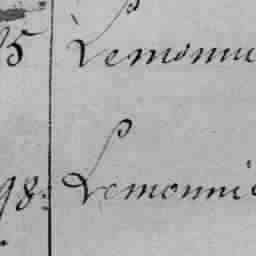 5 Lemonni
98. Lemonnie